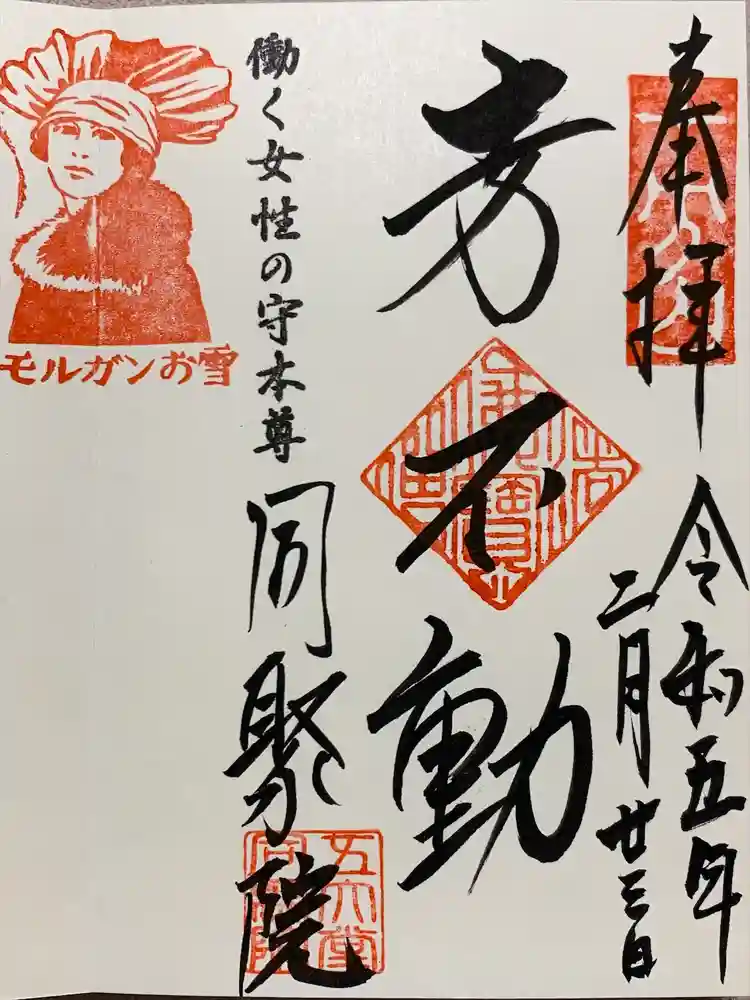 奉拝
令和五年
二月廿三日
不動
働く女性の守本尊
同聚院
五大堂
モルガンお雪